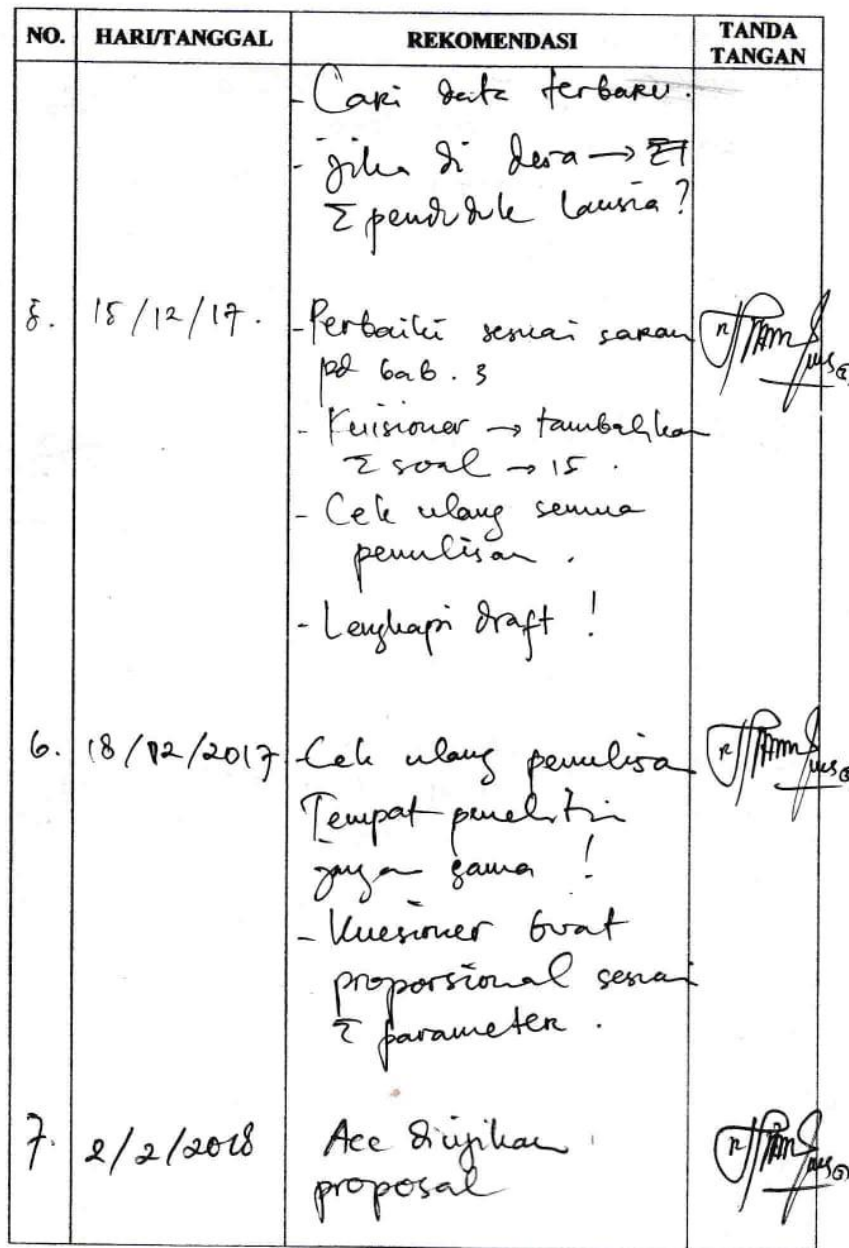 NO. HARI/TANGGAL REKOMENDASI TANDA TANGAN
- Cari data terbaru.
- Jika di desa →
Σ penduduk lansia?
5. 15/12/17. - Perbaiki sesuai saran
pd bab. 3
- Kuisioner → tambahkan
Σ soal → 15.
- Cek ulang semua
penulisan.
- Lengkapi draft !
6. 18/12/2017 - Cek ulang penulisan
Tempat penelitian
jangan sama !
- Kuesioner buat
proporsional sesuai
Σ parameter.
7. 2/2/2018 Acc diujikan
proposal